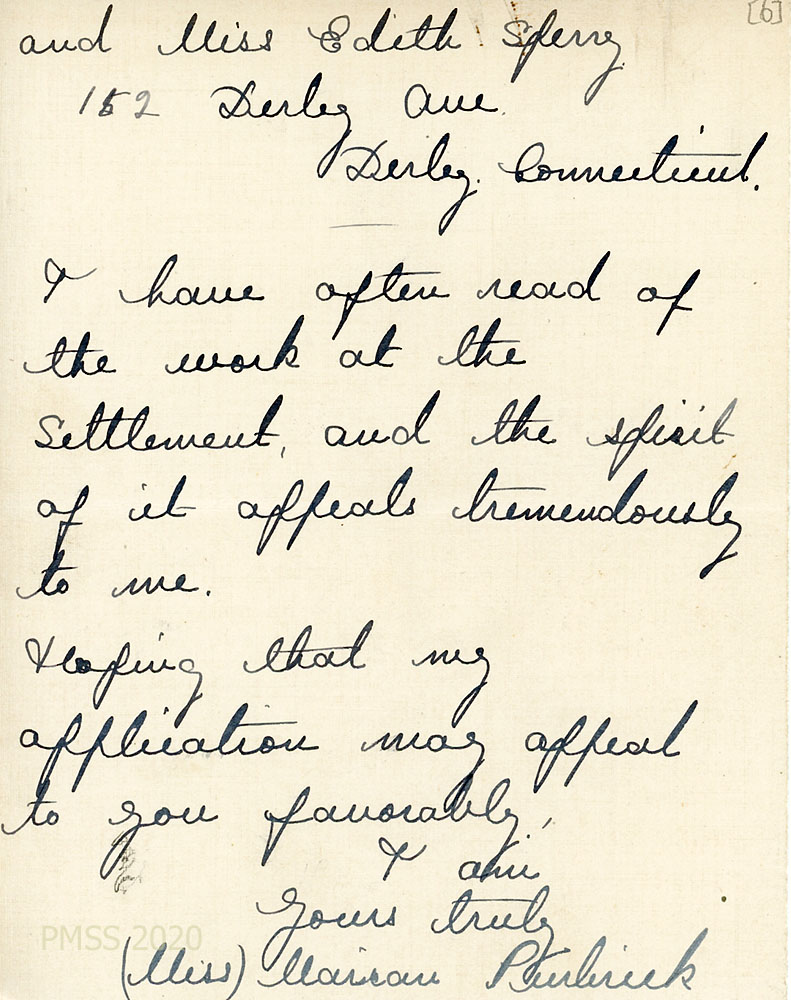 [6]
and Miss Edith Sperry
152 Derby Ave.
Derby. Connecticut.
I have often read of
the work at the
Settlement, and the spirit
of it appeals tremendously
to me.
Hoping that my
application may appeal
to you favorably,
I am
Yours truly
PMSS 2020
(Miss) Marian Purbrick